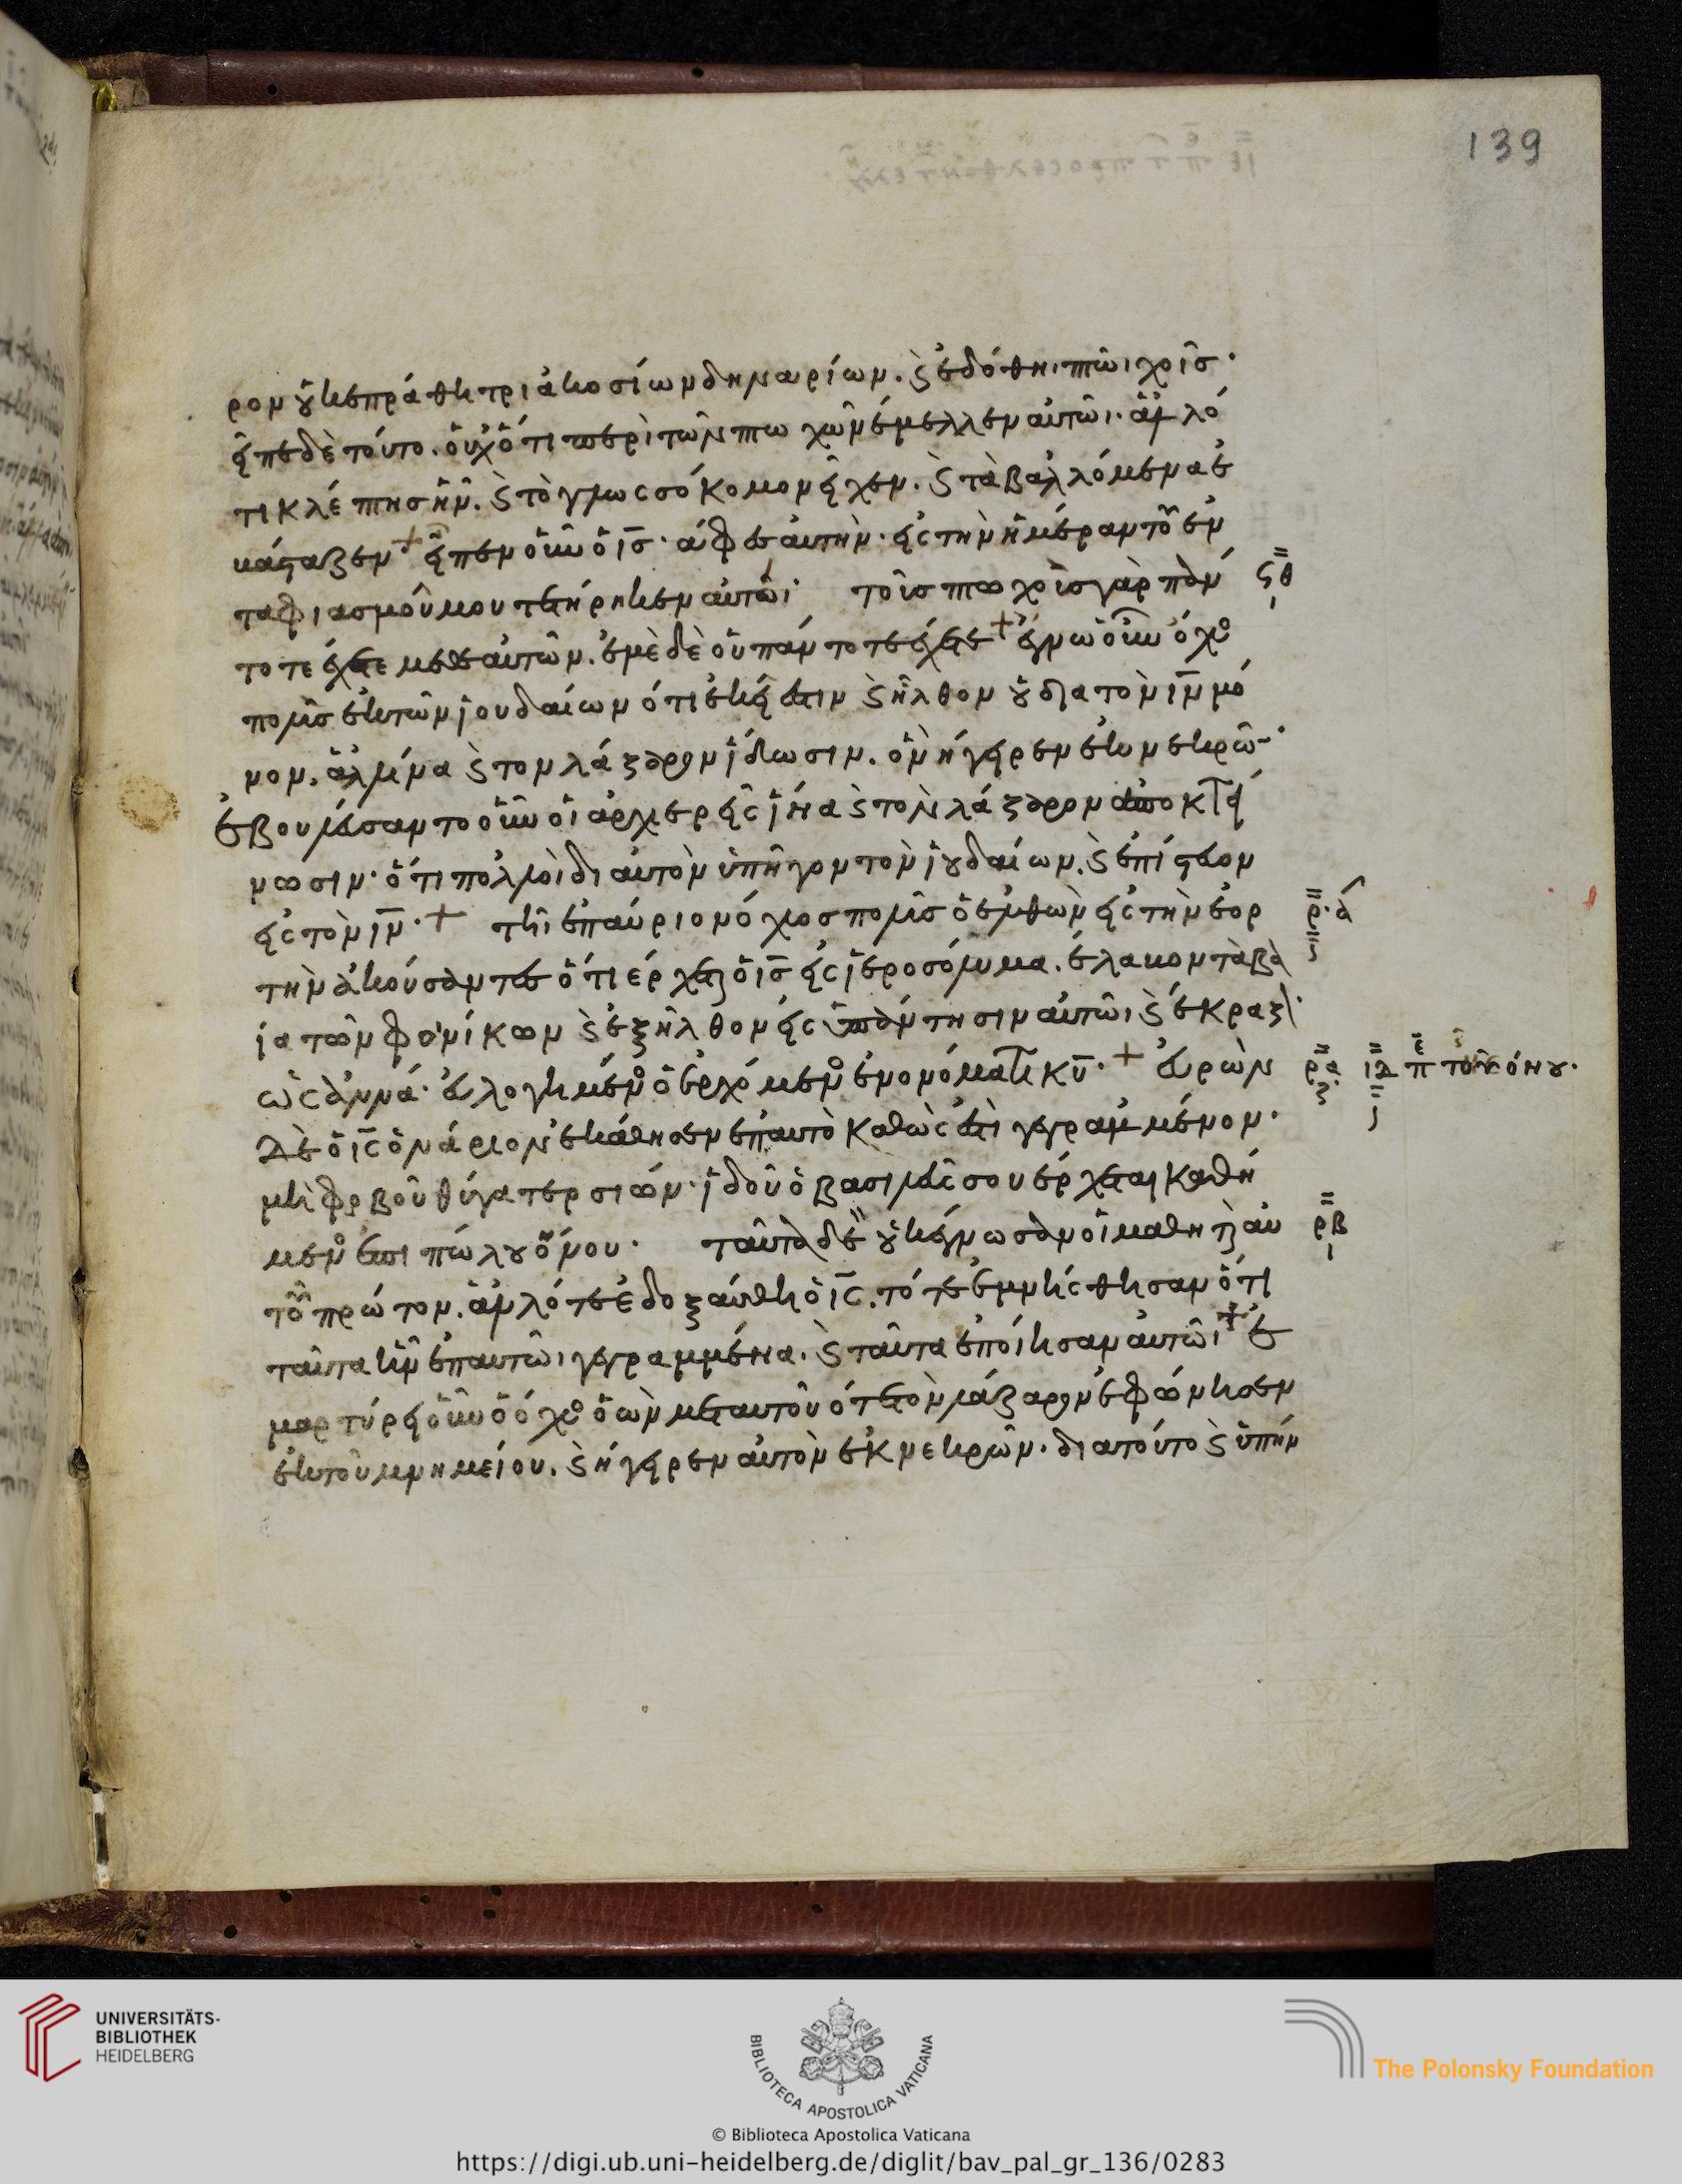 139
ρον οὐκ ἐπράθη τριακοσίων δηναρίων. καὶ ἐδόθη πτωχοῖς·
εἶπε δὲ τοῦτο. οὐχ ὅτι περὶ τῶν πτωχῶν ἔμελλεν αὐτῶι· ἀλλ ὅ
τι κλέπτης ἦν. καὶ τὸ γλωσσόκομον εἶχεν. καὶ τὰ βαλλόμενα ἐ
βάσταζεν + εἶπεν οὖν ὁ ις· ἄφες αὐτὴν· εἰς τὴν ἡμέραν τοῦ ἐν
ταφιασμοῦ μου τετήρηκεν αὐτῶι· τοῖς πτωχοῖς γὰρ πάν
ϟθ
τοτε ἔχετε μεθ εαυτῶν. ἐμὲ δὲ οὐ πάντοτε ἔχετε + ἔγνω οὖν ὄχλος
πολὺς ἐκ τῶν ἰουδαίων ὅτι ἐκεῖ ἐστιν καὶ ἦλθον οὐ δια τὸν ιν μό
νον. ἀλλ ἵνα καὶ τον λάζαρον ἴδωσιν. ὃν ἤγειρεν ἐκ νεκρῶν·
ἐβουλεύσαντο οὖν οἱ ἀρχιερεῖς ἵνα καὶ τον λάζαρον ἀποκτεί
νωσιν· ὅτι πολλοὶ δι αὐτὸν ὑπῆγον τὸν ἰουδαίων. καὶ ἐπίστευον
εἰς τὸν ιν· + τῆι ἐπαύριον ὄχλος πολὺς ὁ ἐλθὼν εἰς τὴν ἑορ
ρ·
τὴν ἀκούσαντες ὅτι ἔρχεται ὁ ις εἰς ἱεροσόλυμα. ἔλαβον τὰ βα
ία τῶν φοινίκων καὶ ἐξῆλθον εἰς ὑπάντησιν αὐτῶι καὶ ἔκραζον·
ὡσαννά· εὐλογημένος ὁ ἐρχόμενος ἐν ονόματι κυ· + εὑρὼν
ρα
δὲ ὁ ις ὀνάριον ἐκάθησεν ἐπ αυτὸ καθὼς ἐστὶ γεγραμμένον·
μὴ φοβοῦ θύγατερ σιών· ἰδοὺ ὁ βασιλεύς σου ἔρχεται καθή
μενος ἐπι πώλου ὄνου· ταῦτα δὲ οὐκ ἔγνωσαν οἱ μαθηταὶ αὐ
ρβ
τοῦ πρώτον. ἀλλ ότε ἐδοξάσθη ὁ ις. τότε ἐμνήσθησαν ὅτι
ταῦτα ἦν ἐπ αυτῶι γεγραμμένα. καὶ ταῦτα ἐποίησαν αὐτῶι + ἐ
μαρτύρει οὖν ὁ όχλος ὁ ὼν μετ αυτοῦ ότε τὸν λάζαρον ἐφώνησεν
ἐκ τοῦ μνημείου. καὶ ήγειρεν αὐτὸν ἐκ νεκρῶν· διατοῦτο καὶ ὑπήν
UNIVERSITÄTS-
BIBLIOTHEK
HEIDELBERG
BIBLIOTECA APOSTOLICA VATICANA
The Polonsky Foundation
© Biblioteca Apostolica Vaticana
https://digi.ub.uni-heidelberg.de/diglit/bav_pal_gr_136/0283